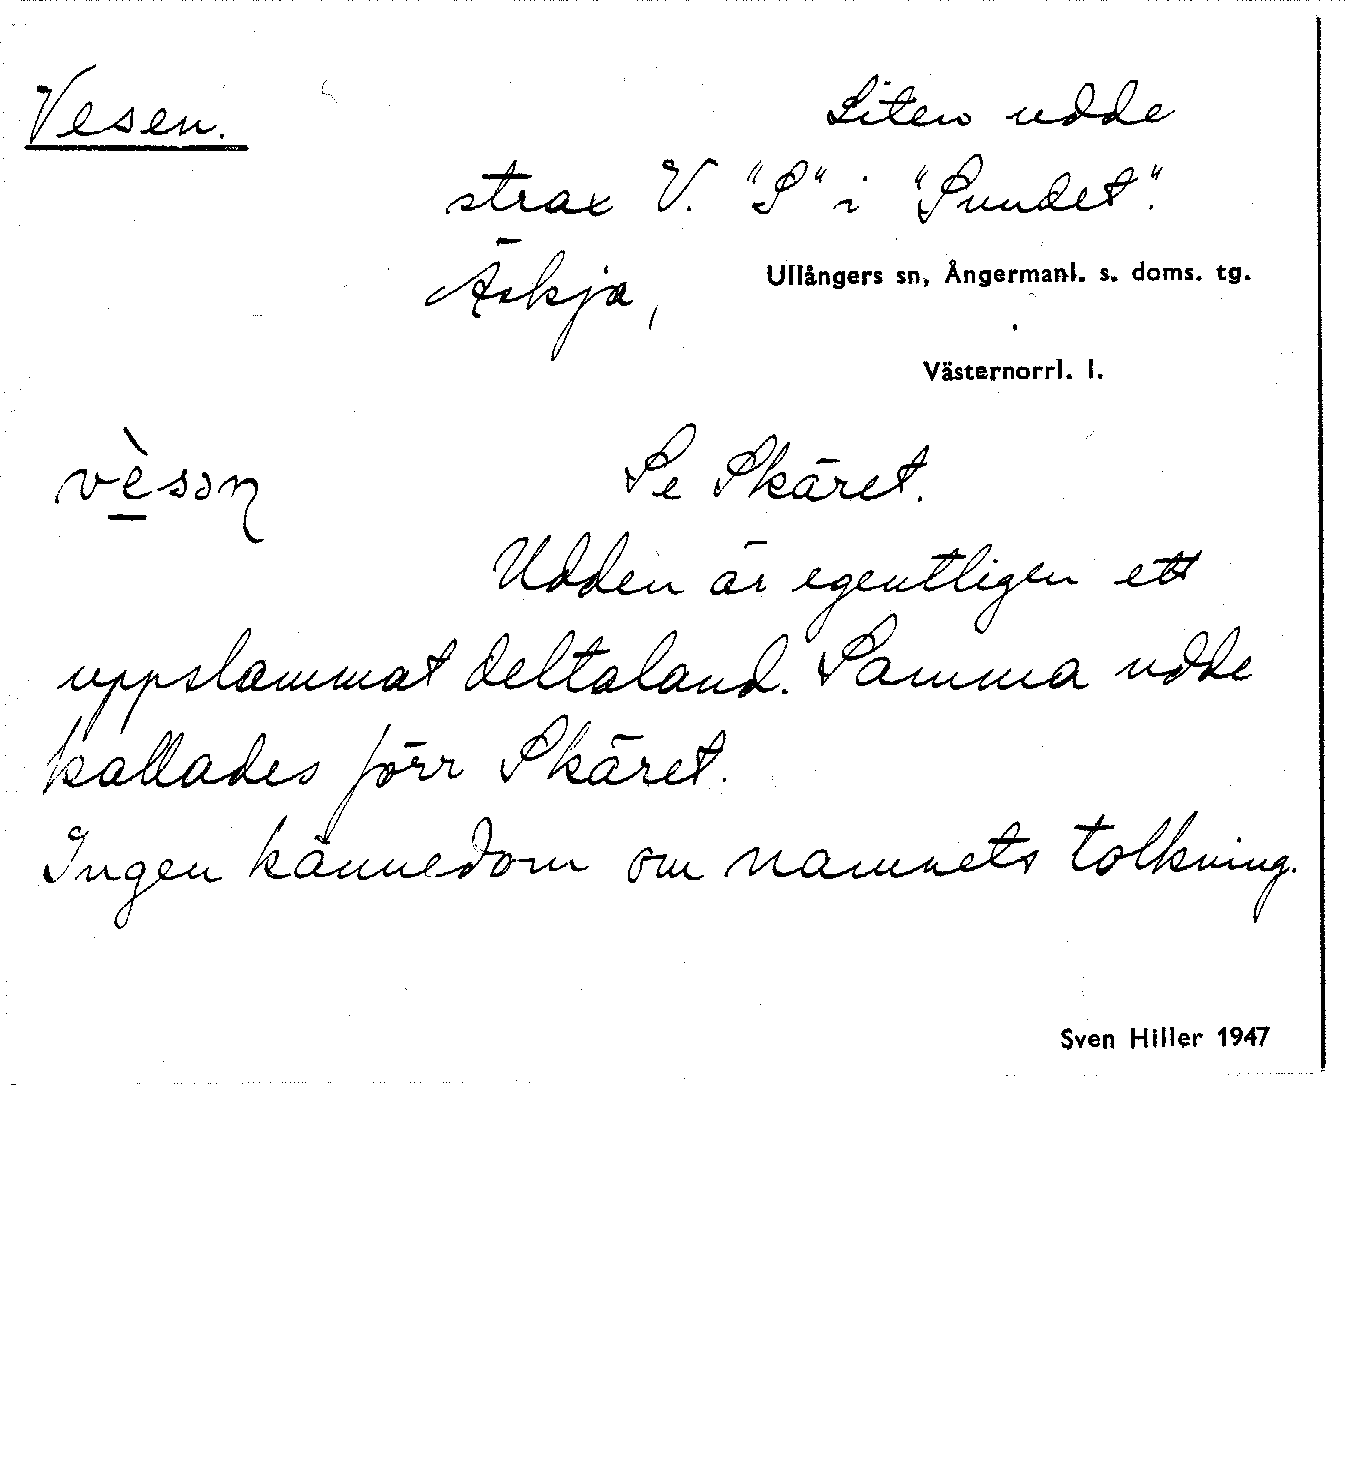 Vesen. Liten udde
strax V. "S" i "Sundet".
Äskja, Ullångers sn, Ångermanl. s. doms. tg.
Västernorrl. l.
vèsən Se Skäret.
Udden är egentligen ett
uppslammat deltaland. Samma udde
kallades förr Skäret.
Ingen kännedom om namnets tolkning.
Sven Hiller 1947